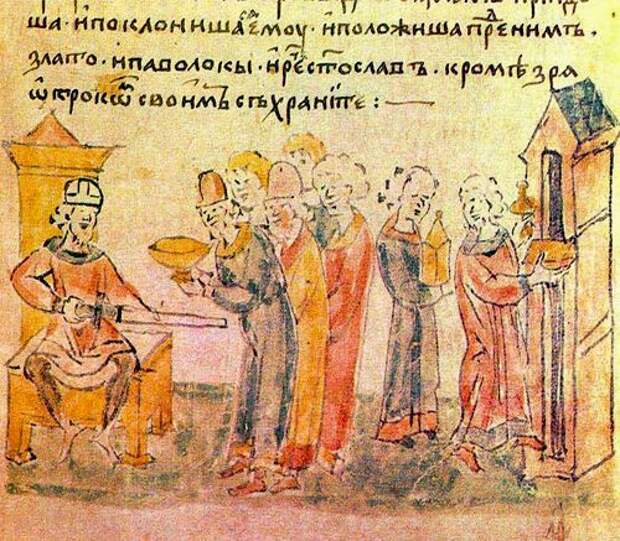 ша · ипоклонишасѧ емоу · иположиша преⷣнимъ ·
злато · ипаволокы · ирⷱестославъ · кромѣ зрѧ
ѿтрокѡⷨ своимъ съхраните : —